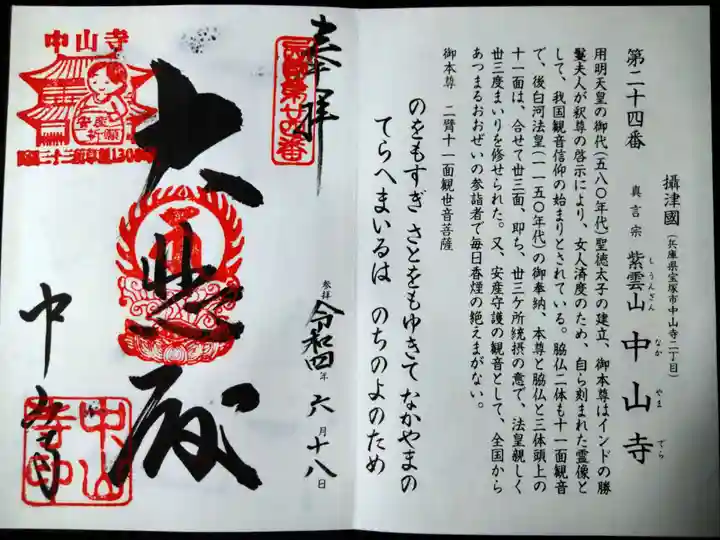 攝津國(兵庫県宝塚市中山寺二丁目)
第二十四番 真言宗 紫雲山 中山寺
しうんざん なか やま でら
用明天皇の御代(五八〇年代)聖徳太子の建立、御本尊はインドの勝
鬘夫人が釈尊の啓示により、女人済度のため、自ら刻まれた霊像と
して、我国観音信仰の始まりとされている。脇仏二体も十一面観音
で、後白河法皇(一一五〇年代)の御奉納、本尊と脇仏と三体頭上の
十一面は、合せて丗三面、即ち、丗三ケ所統摂の意で、法皇親しく
丗三度まいりを修せられた。又、安産守護の観音として、全国から
あつまるおおぜいの参詣者で毎日香煙の絶えまがない。
御本尊 二臂十一面観世音菩薩
のをもすぎ さとをもゆきて なかやまの
てらへまいるは のちのよのため
奉拝
参拝 令和四年 六月十八日
大悲殿
中山寺
中山寺
安産
祈願
中山寺